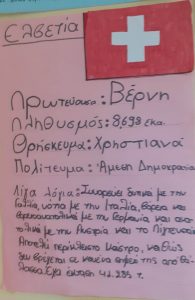 Ελβετία
Πρωτεύουσα: Βέρνη
Πληθυσμός: 8,698 εκα.
Θρήσκευμα: Χρηστιανοί
Πολίτευμα: Άμεση Δημοκρατία
Λίγα λόγια: Συνορεύει δυτικά με την
Γαλλία, νότια με την Ιταλία, βόρεια και
με την Γερμανία και ανα-
τολικά με την Αυστρία και το Λιχτενστάιν
Αποτελεί περίκλειστο κάστρο, καθώς
δεν βρέχεται σε κανένα σημείο της από θά-
λασσα. Έχει έκταση 41.285 τ.